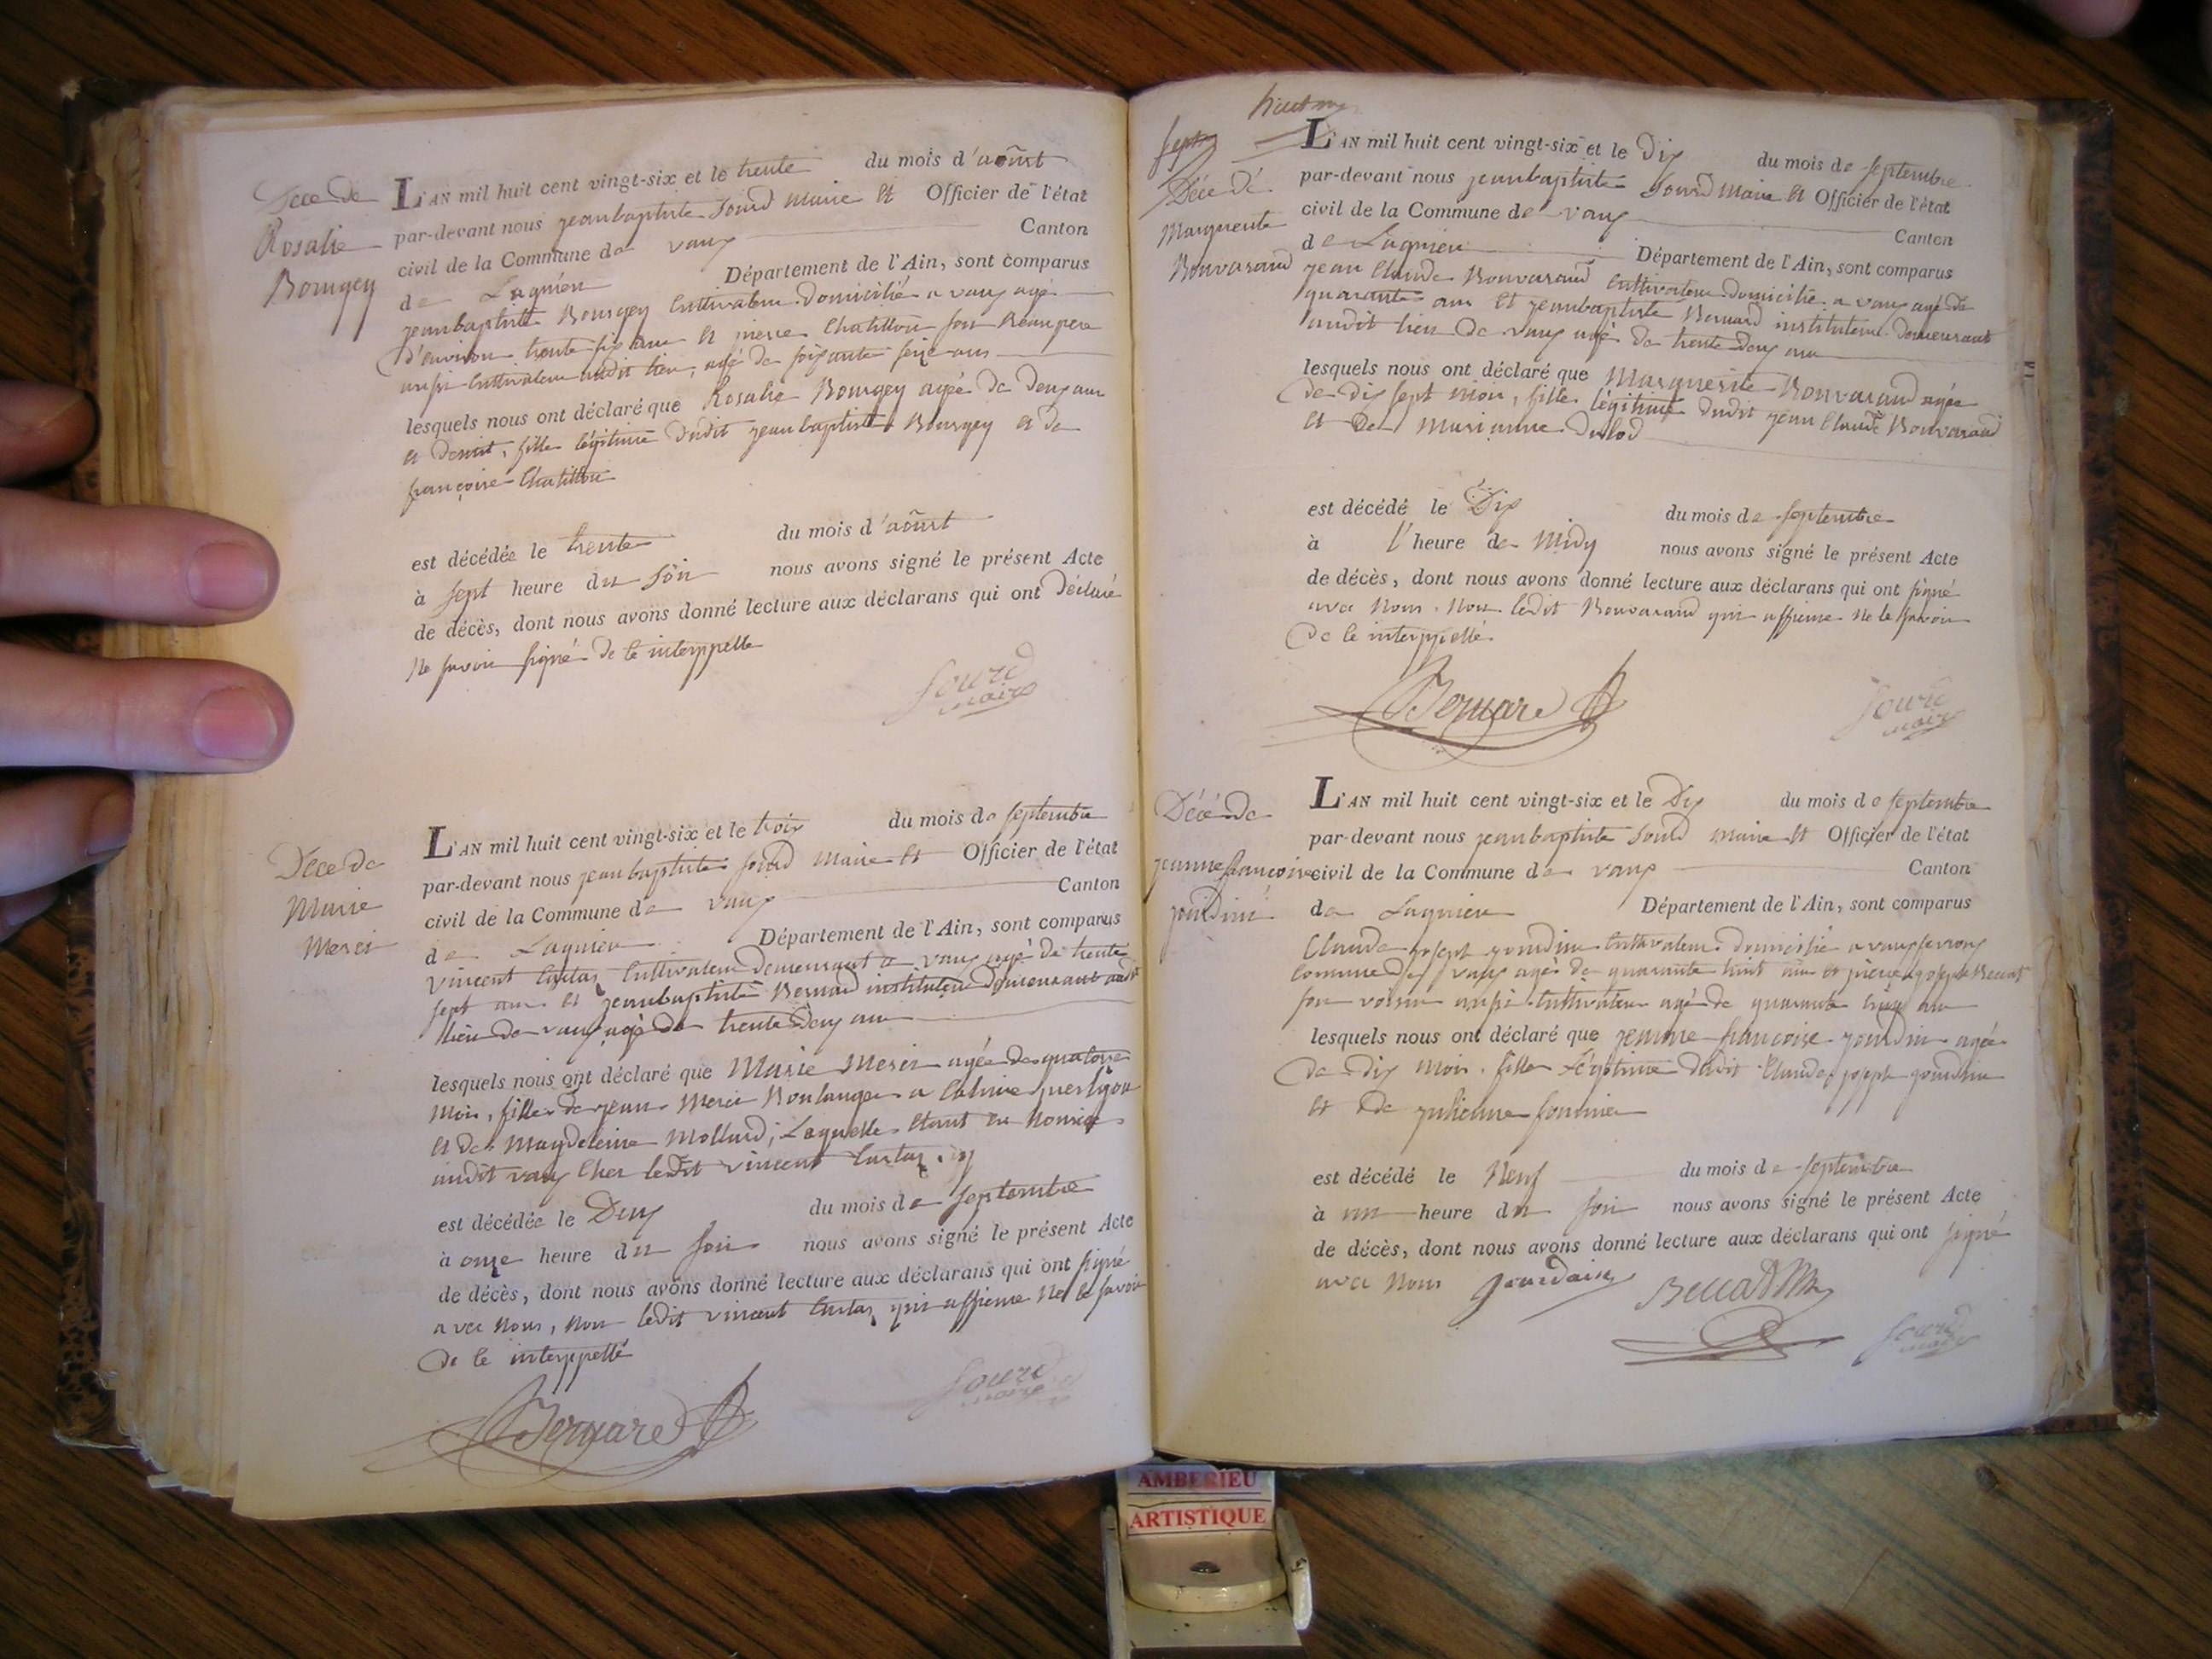 Décé de
Rosalie
Bourgey
L'AN mil huit cent vingt-six et le trente du mois d'aoûst
par-devant nous jeanbaptiste Sourd maire et Officier de l'état
civil de la Commune de vaux Canton
de Lagnieu Département de l'Ain, sont comparus
jeanbaptiste Bourgey Cultivateur domicilié a vaux agé
d'environ trente six ans et pierre Chatillon son Beaupere
aussi Cultivateur audit lieu, agé de soixante seize ans
lesquels nous ont déclaré que Rosalie Bourgey agée de deux ans
et demit, fille légitime dudit jeanbaptiste Bourgey et de
françoise Chatillon
est décédée le trente du mois d'aoûst
à sept heure du soir nous avons signé le présent Acte
de décès, dont nous avons donné lecture aux déclarans qui ont déclaré
Ne savoir signé de ce interppellé
Sourd
maire
Décé de
Marie
Mercir
L'AN mil huit cent vingt-six et le trois du mois de septembre
par-devant nous jeanbaptiste sourd maire et Officier de l'état
civil de la Commune de vaux Canton
de Lagnieu Département de l'Ain, sont comparus
vincent Cartaz Cultivateur demeurant a vaux agé de trente
sept ans et jeanbaptiste Bernard instituteur demeurant audit
lieu de vaux agé de trente deux ans
lesquels nous ont déclaré que Marie Mercir agée de quatorze
mois, fille de jean Boulanger a
et de Magdeleine Mollard, Laquelle etant en Nourice
audit vaux Cher ledit vincent Cartaz
est décédée le Deux du mois de septembre
à onze heure du soir nous avons signé le présent Acte
de décès, dont nous avons donné lecture aux déclarans qui ont signé
avec nous, Non ledit vincent Cartaz qui affirme Ne le savoir
de ce interppellé
Bernard
Sourd
maire
Septre
Décé de
Marguerite
Bouvarand
L'AN mil huit cent vingt-six et le dix du mois de septembre
par-devant nous jeanbaptiste Sourd Maire et Officier de l'état
civil de la Commune de vaux Canton
de Lagnieu Département de l'Ain, sont comparus
jean Claude Bouvarand Cultivateur domicilié a vaux agé de
quarante ans et jeanbaptiste Bernard instituteur demeurant
audit lieu de vaux agé de trente deux ans
lesquels nous ont déclaré que Marguerite Bouvarand agée
de dix sept mois, fille légitime dudit jean Claude Bouvarand
et de marianne
est décédé le Dix du mois de septembre
à l'heure de Midy nous avons signé le présent Acte
de décès, dont nous avons donné lecture aux déclarans qui ont signé
avec Nous, Non ledit Bouvarand qui affirme Ne le savoir
de ce interppellé
Bernard
Sourd
maire
Décé de
jeanne françoise
jourdin
L'AN mil huit cent vingt-six et le Dix du mois de septembre
par-devant nous jeanbaptiste Sourd maire et Officier de l'état
civil de la Commune de vaux Canton
de Lagnieu Département de l'Ain, sont comparus
Claude joseph jourdin Cultivateur domicilié a vauxfevroux
Commune de vaux agé de quarante huit ans et pierre joseph Beccat
son voisin aussi Cultivateur agé de quarante ans
lesquels nous ont déclaré que jeanne françoise jourdin agée
de dix mois, fille Légitime dudit Claude joseph jourdin
et de julienne
est décédé le Neuf du mois de septembre
à un heure du soir nous avons signé le présent Acte
de décès, dont nous avons donné lecture aux déclarans qui ont signé
avec Nous Jourdain
Sourd
maire
AMBERIEU
ARTISTIQUE